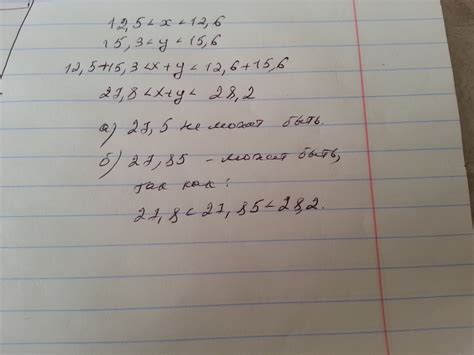 12,5 < x < 12,6
15,3 < y < 15,6
12,5+15,3 < x+y < 12,6+15,6
27,8 < x+y < 28,2
а) 27,5 не может быть.
б) 27,85 - может быть,
так как:
27,8 < 27,85 < 28,2.